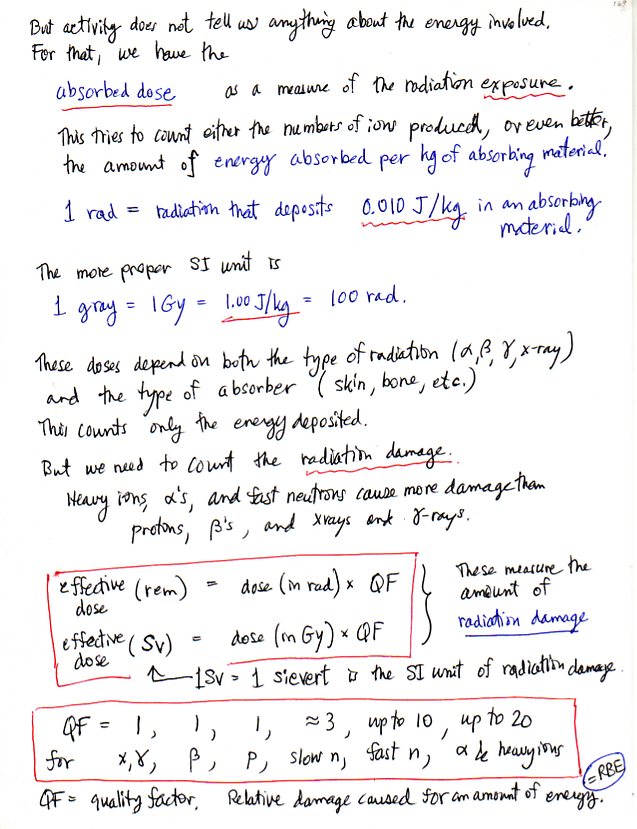 169
But activity does not tell us anything about the energy involved.
For that, we have the
absorbed dose as a measure of the radiation exposure.
This tries to count either the numbers of ions produced, or even better,
the amount of energy absorbed per kg of absorbing material.
1 rad = radiation that deposits 0.010 J/kg in an absorbing
material.
The more proper SI unit is
1 gray = 1 Gy = 1.00 J/kg = 100 rad.
These doses depend on both the type of radiation (α, β, γ, x-ray)
and the type of absorber (skin, bone, etc.)
This counts only the energy deposited.
But we need to count the radiation damage.
Heavy ions, α's, and fast neutrons cause more damage than
protons, β's, and xrays and γ-rays.
effective dose (rem) = dose (in rad) × QF
effective dose (Sv) = dose (in Gy) × QF
These measure the
amount of
radiation damage
1 Sv = 1 sievert is the SI unit of radiation damage.
QF = 1, 1, 1, ≈3, up to 10, up to 20
for x,γ, β, p, slow n, fast n, α & heavy ions
=RBE
QF = quality factor. Relative damage caused for an amount of energy.